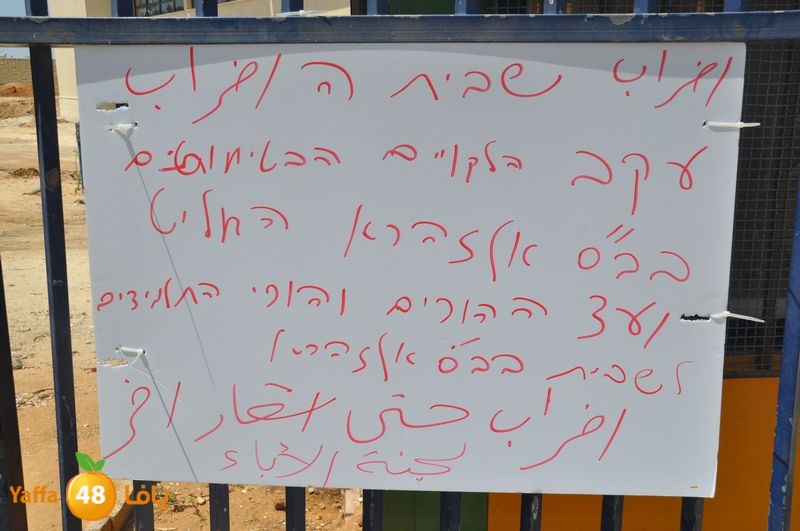 اضراب שביתה اضراب
עקב הלקויים הבטיחותיים
בבי"ס אלזהרא החליט
ועד ההורים והורי התלמידים
לשבית בבי"ס אלזהרא
اضراب حتى اشعار اخر
لجنة الاباء
Yaffa 48 يافا